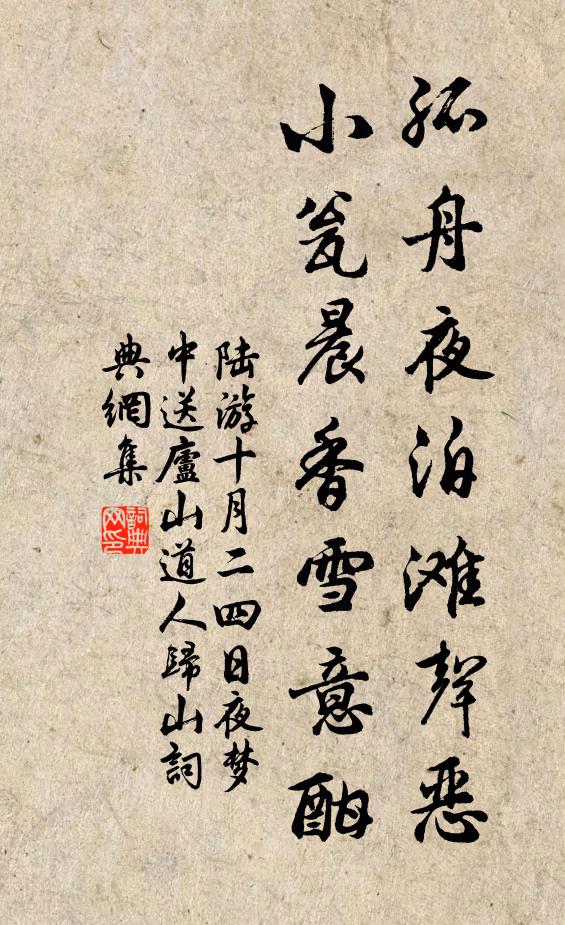 孤舟夜泊滩聲惡
小瓮晨香雪意酣
陆游十月二四日夜梦
中送廬山道人歸山詞
典網集
詞典网印